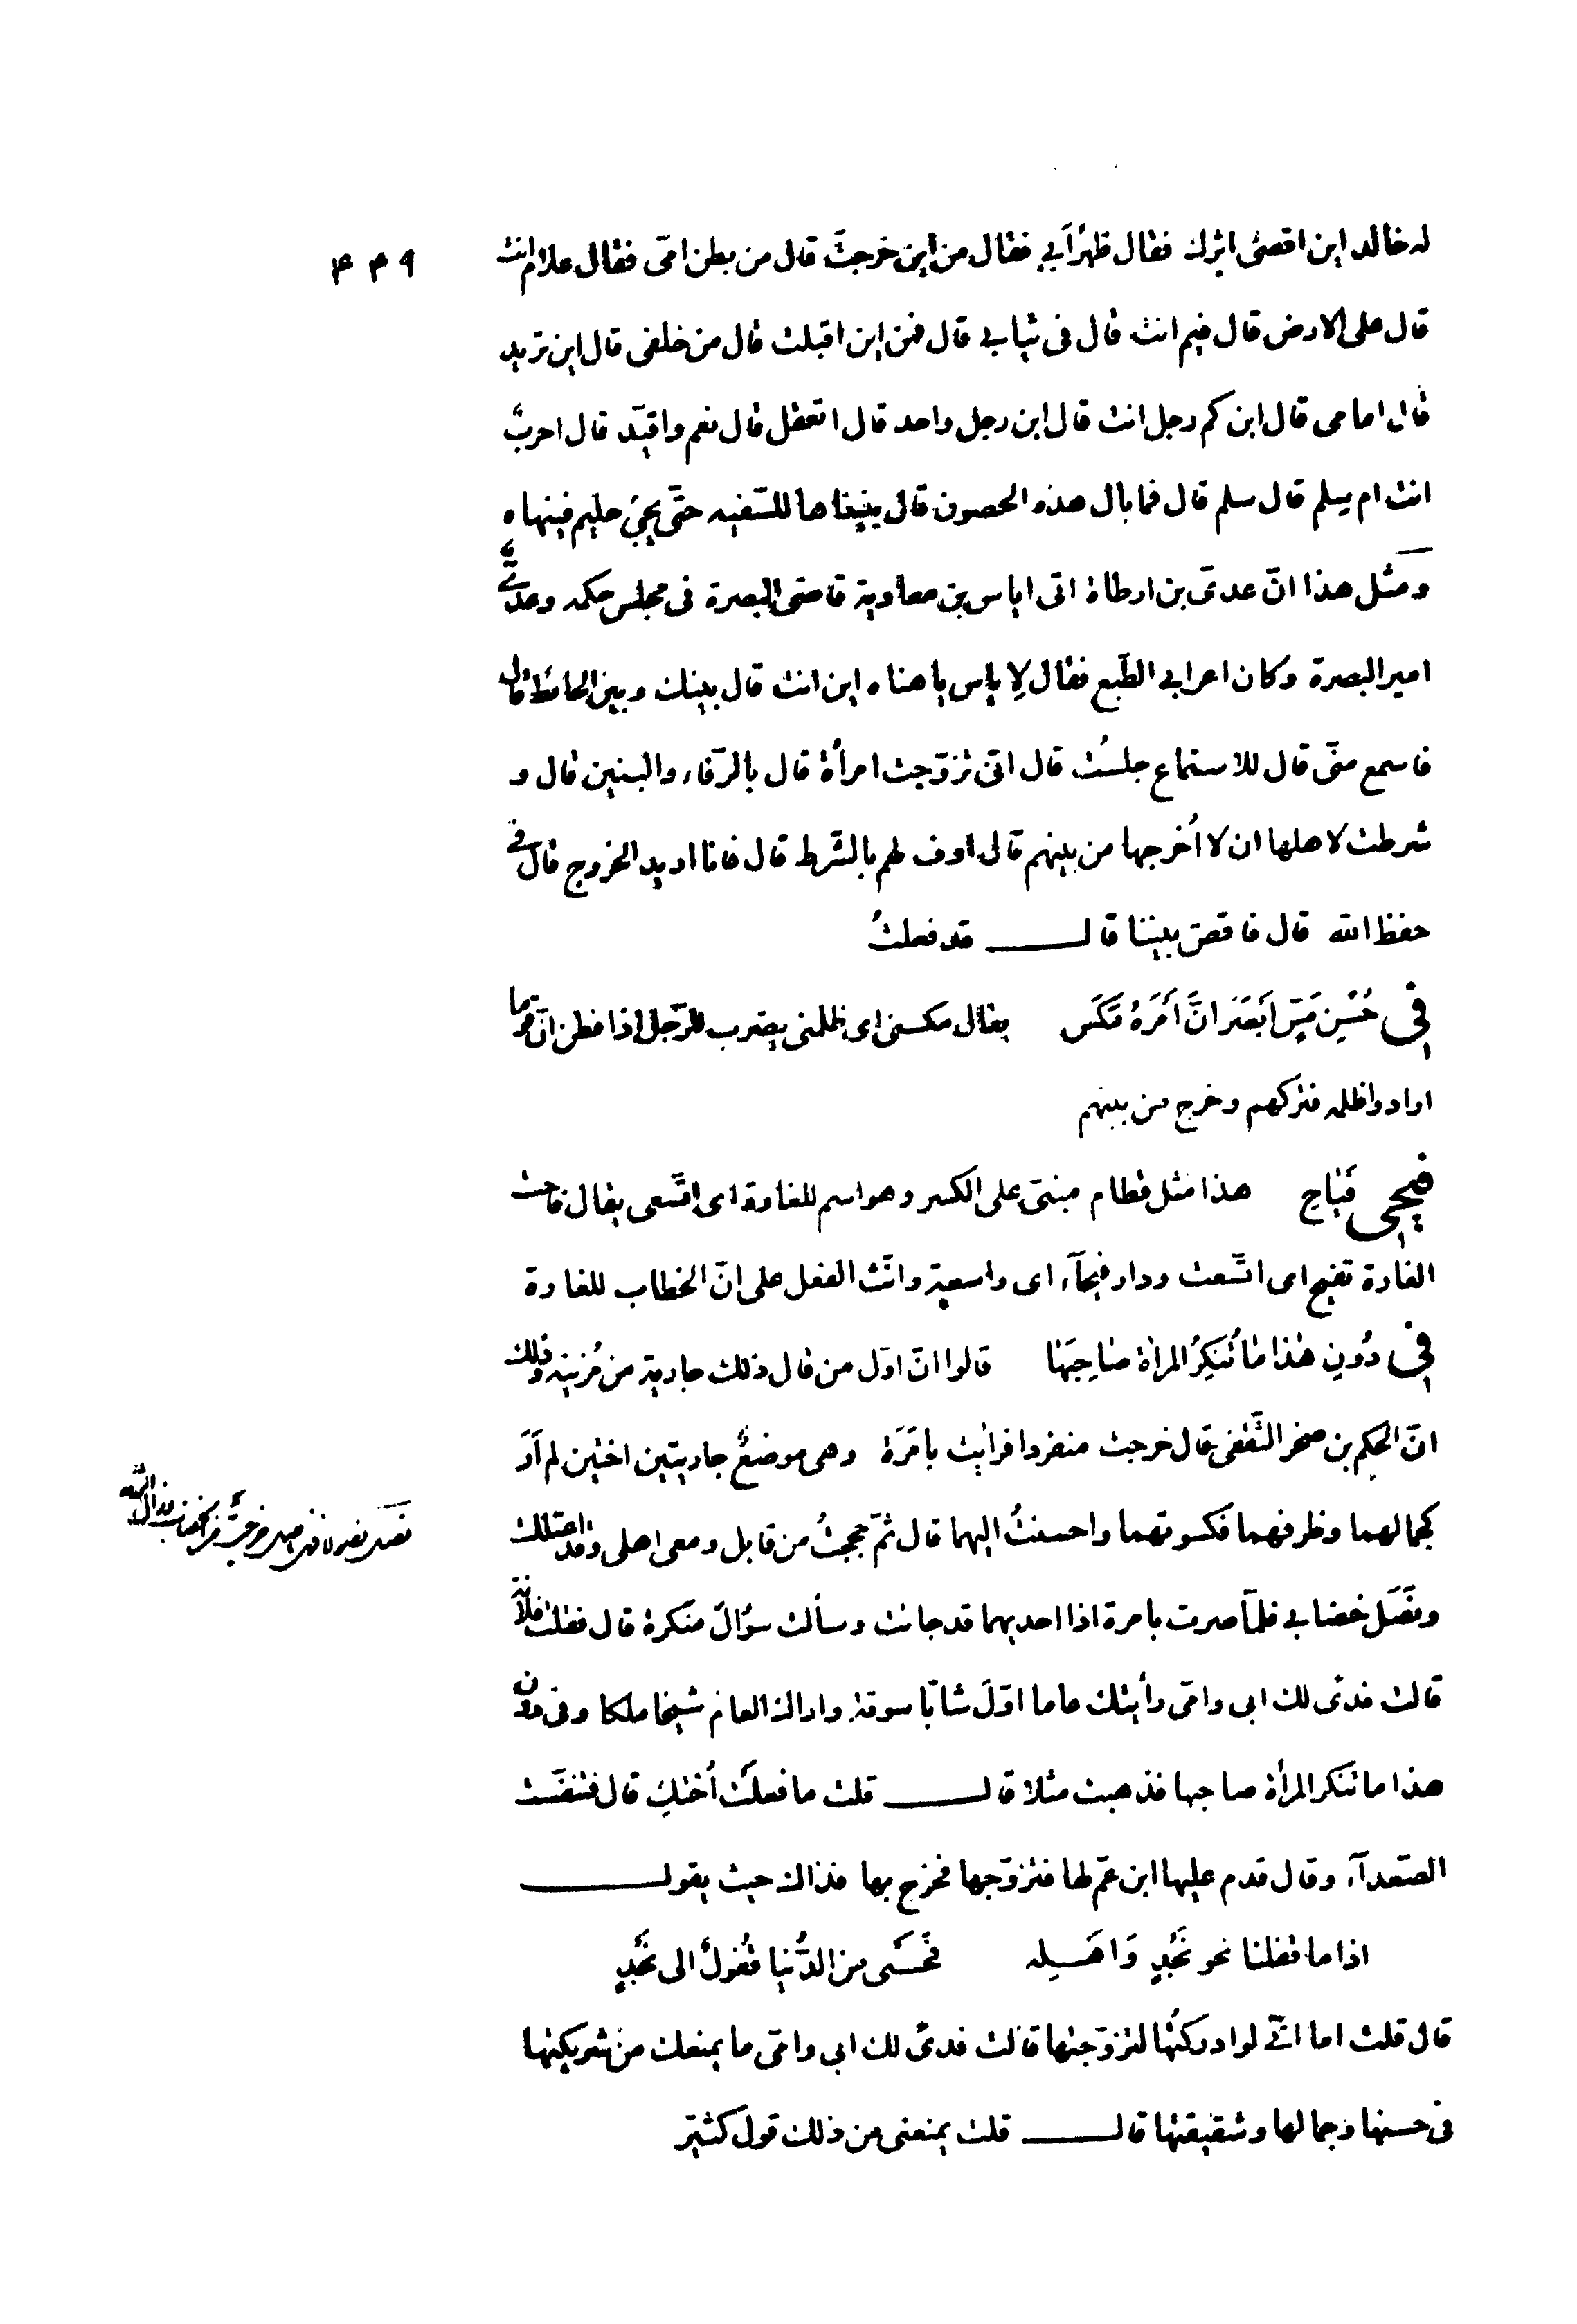 ٤٣٩
له خالد اين اقصى اثرك فقال ظهر ابي فقال من اين خرجت قال من بطن امّى فقال علام انت
قال على الارض قال فيم انت قال فى ثيابي قال فمن اين اقبلت قال من خلفى قال اين تريد
قال امامى قال ابن كم رجل انت قال ابن رجل واحد قال اتعقل قال نعم واقيّد قال احربٌ
انت ام سلم قال سلم قال فما بال هذه الحصون قال بنيناها للسّفيه حتّى يجئ حليم فينهاه
ومثل هذا انّ عدىّ بن ارطاة اتى اياس بن معاوية قاضى البصرة فى مجلس حكمه وعدىّ
امير البصرة وكان اعرابي الطّبع فقال لاياس ياهناه اين انت قال بينك وبين الحائط قال
فاسمع منّى قال للاستماع جلستُ قال انّى تزوّجت امرأة قال بالرّفاء والبنين قال و
شرطت لاهلها ان لا اُخرجها من بينهم قال اوف لهم بالشّرط قال فانا اريد الخروج قال فى
حفظ الله قال فاقض بيننا قال قد فعلتُ
فِى حُسْنِ مَيّسٍ اَبْصَرَ انَّ اَمْرَهُ مَكَس يقال مكسنى اى ظلمنى يضرب للرّجل اذا فطن انّ قوما
ارادوا ظلمه فتركهم وخرج من بينهم
فِيحِى فَيَاحِ هذا مثل قطام مبنىّ على الكسر وهو اسم للغارة اى اتّسعى يقال فاحت
الغارة تفيح اى اتّسعت ودار فيحآء اى واسعة وانّث الفعل على انّ الخطاب للغارة
فِى دُونِ هٰذا مٰا تُنْكِرُ المرأة صٰاحِبَهٰا قالوا انّ اوّل من قال ذلك جارية من مُزينة وذلك
انّ الحكم بن صخر الثّقفى قال خرجت منفردا فرأيت بامَرَة وهى موضعٌ جاريتين اختين لم اَرَ
كجمالهما وظرفهما فكسوتهما واحسنتُ اليهما قال ثمّ حججتُ من قابل ومعى اهلى وقد اعتللت
ونَصَل خضابي فلمّا صرت بامرة اذا احديهما قد جائت وسألت سؤال منكرة قال فقلت فلانة
قالت فدىً لك ابى وامّى رأيتك عاما اوّل شابّا سوقة واراك العام شيخا ملكا وفى دون
هذا ما تنكر المرأة صاحبها فذهبت مثلا قال قلت ما فعلَت اُختكِ قال فتنفّست
الصّعدآء وقال قدم عليها ابن عمّ لها فتزوّجها فخرج بها فذاك حيث يقول
اذا ما قفلنا نحو نَجْدٍ وَاهَــلِه فَحَسْبى من الدُّنيا قُفولٌ الى نَجْدٍ
قال قلت اما انّى لو ادركتُها لتزوّجتها قالت فدىً لك ابى وامّى ما يمنعك من شريكتها
فى حسنها وجمالها وشقيقتها قال قلت يمنعنى من ذلك قول كثيّر